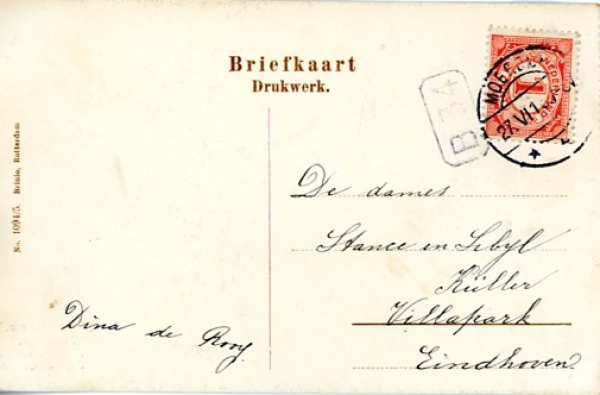 Briefkaart
Drukwerk.
NEDERLAND
1
27.VI1
B 34
No. 1094/5. Brinio, Rotterdam
De dames
Stance en Sibyl
Küller
Villapark
Eindhoven
Dina de Rooy.